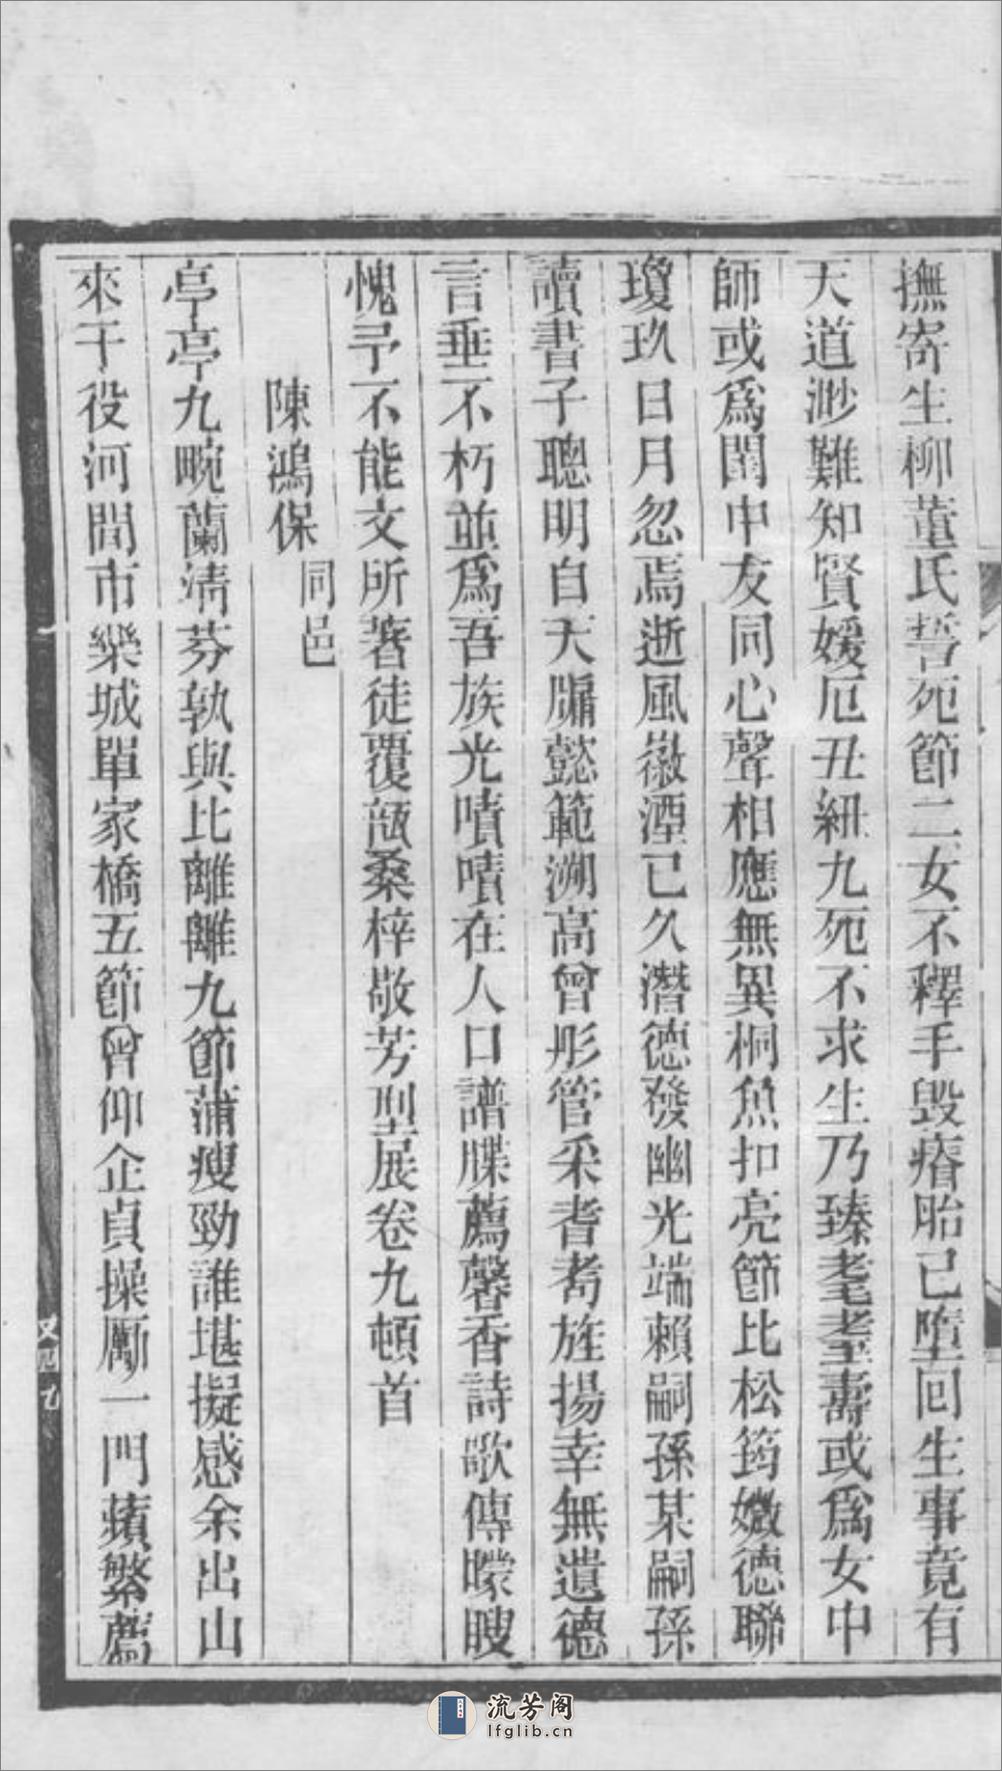 撫寄生柳董氏誓死節二女不釋手毀瘠胎已墮回生事竟有
天道渺難知賢媛厄丑紐九死不求生乃臻耄耋壽或爲女中
師或爲閨中友同心聲相應無異桐魚扣亮節比松筠媺德聯
瓊玖日月忽焉逝風徽湮已久潛德發幽光端賴嗣孫某嗣孫
讀書子聰明自天牖懿範溯高曾彤管采耆耇旌揚幸無遺德
言垂不朽並爲吾族光嘖嘖在人口譜牒薦馨香詩歌傳矇瞍
愧予不能文所著徒覆瓿桑梓敬芳型展卷九頓首
陳鴻保同邑
亭亭九畹蘭清芬孰與比離離九節蒲瘦勁誰堪擬感余出山
來干役河間市樂城單家橋五節曾仰企貞操厲一門蘋蘩薦
又四九
流芳阁
lfglib.cn